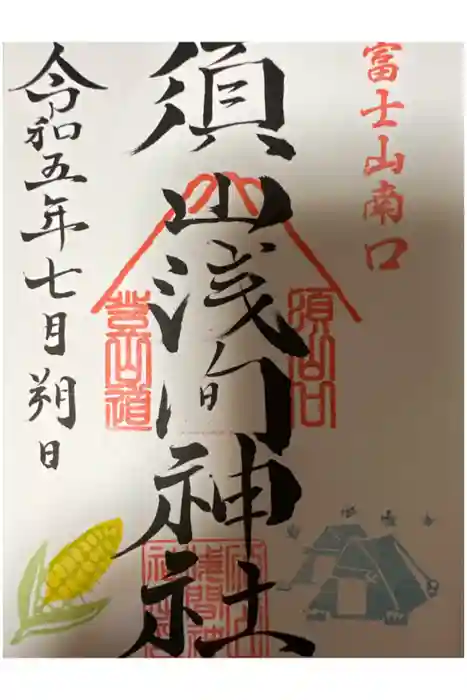 富士山南口
須山浅間神社
須山口
登山道
令和五年七月朔日